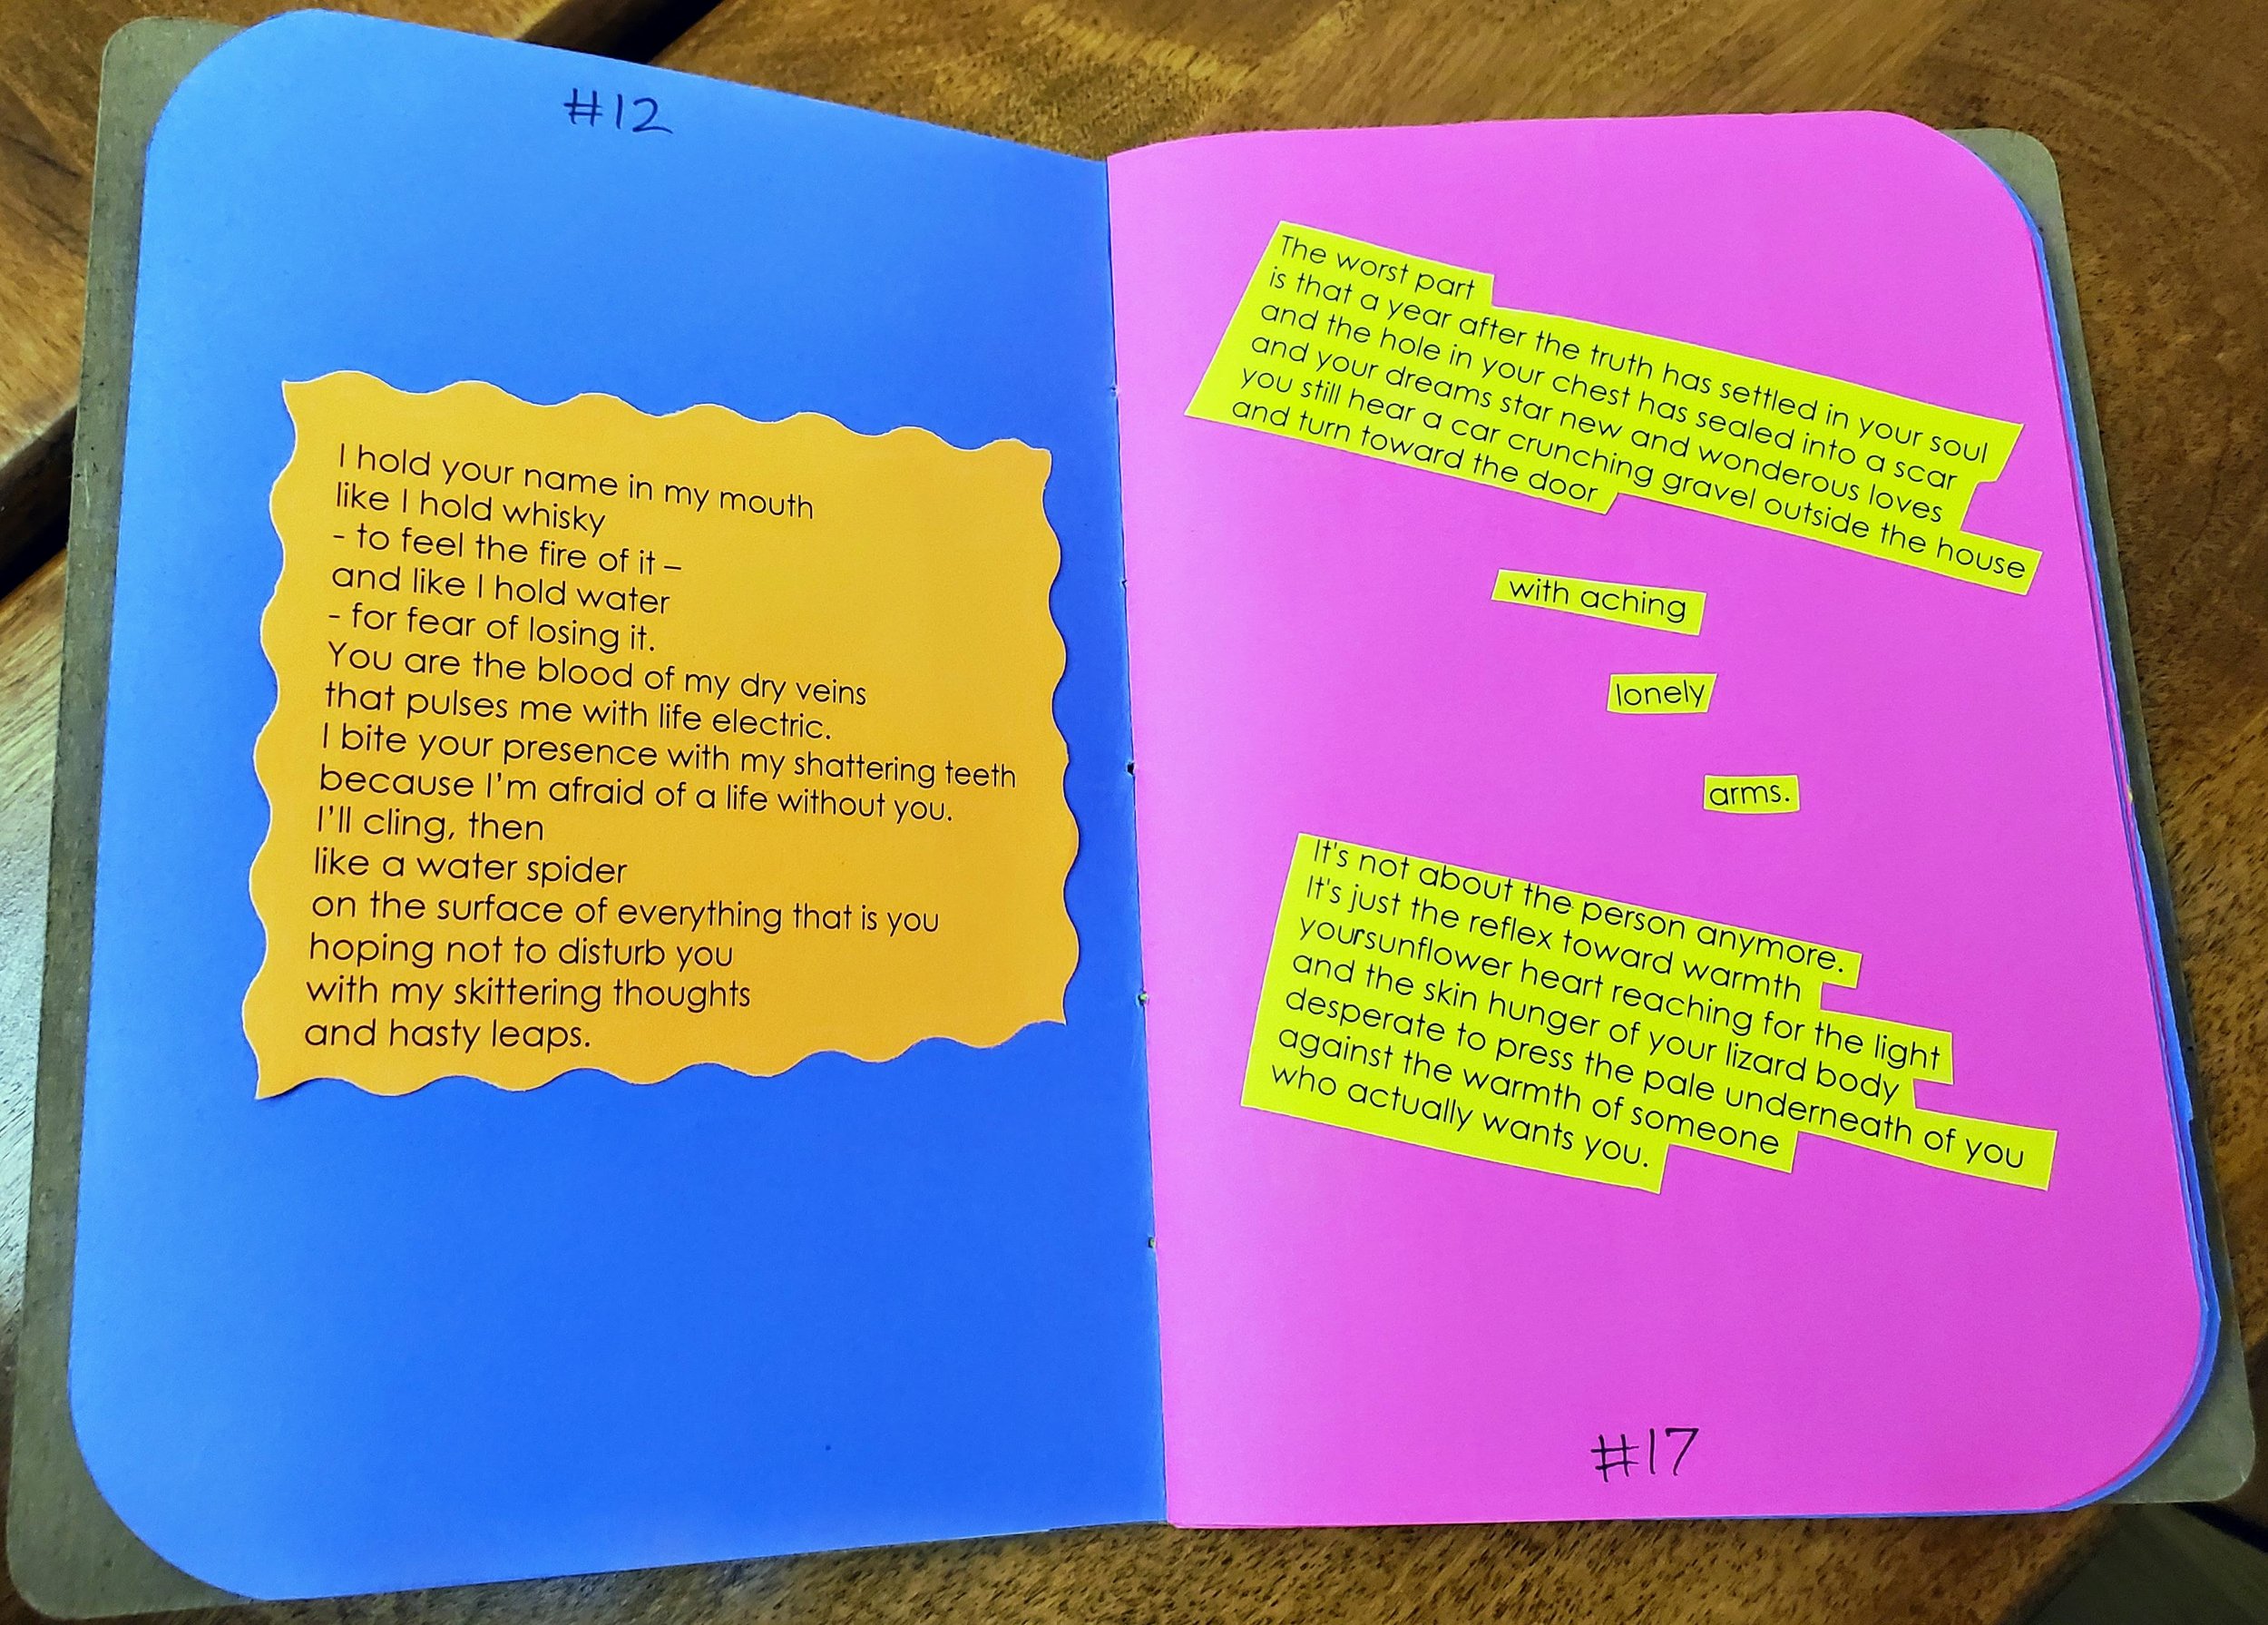 #12
I hold your name in my mouth
like I hold whisky
- to feel the fire of it –
and like I hold water
- for fear of losing it.
You are the blood of my dry veins
that pulses me with life electric.
I bite your presence with my shattering teeth
because I'm afraid of a life without you.
I'll cling, then
like a water spider
on the surface of everything that is you
hoping not to disturb you
with my skittering thoughts
and hasty leaps.
The worst part
is that a year after the truth has settled in your soul
and the hole in your chest has sealed into a scar
and your dreams star new and wonderous loves
you still hear a car crunching gravel outside the house
and turn toward the door
with aching
lonely
arms.
It's not about the person anymore.
It's just the reflex toward warmth
yoursunflower heart reaching for the light
and the skin hunger of your lizard body
desperate to press the pale underneath of you
against the warmth of someone
who actually wants you.
#17